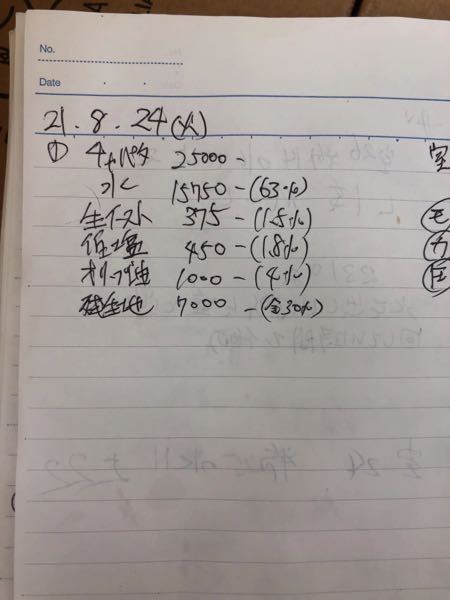 No.
Date
21.8.24(火)
① ナポリ 25000 -
水 15750 -(63%)
生イースト 375 -(1.5%)
伯塩 450 -(1.8%)
オリーブ油 1000 -(4%)
残生地 7000 -(全30%)
室
モ
カ